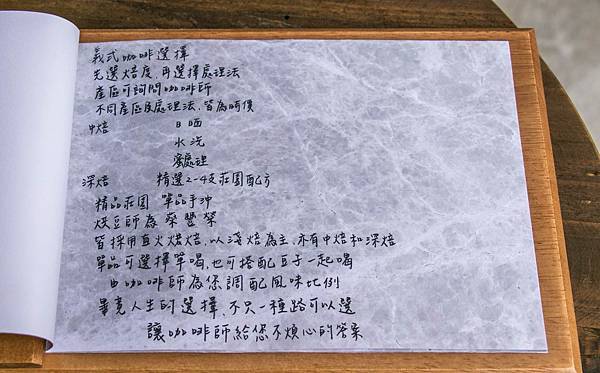 義式咖啡選擇
先選焙度,再選擇處理法
產區可詢問咖啡師
不同產區及處理法,皆為時價
中焙 日晒
水洗
蜜處理
深焙 精選2-4支莊園配方
精品莊園 單品手沖
炒豆師為 榮豐榮
皆採用直火烘焙,以淺焙為主,亦有中焙和深焙
單品可選擇單喝,也可搭配豆子一起喝
由咖啡師為您調配風味比例
畢竟人生的選擇,不只一種路可以選
讓咖啡師給您不煩心的答案